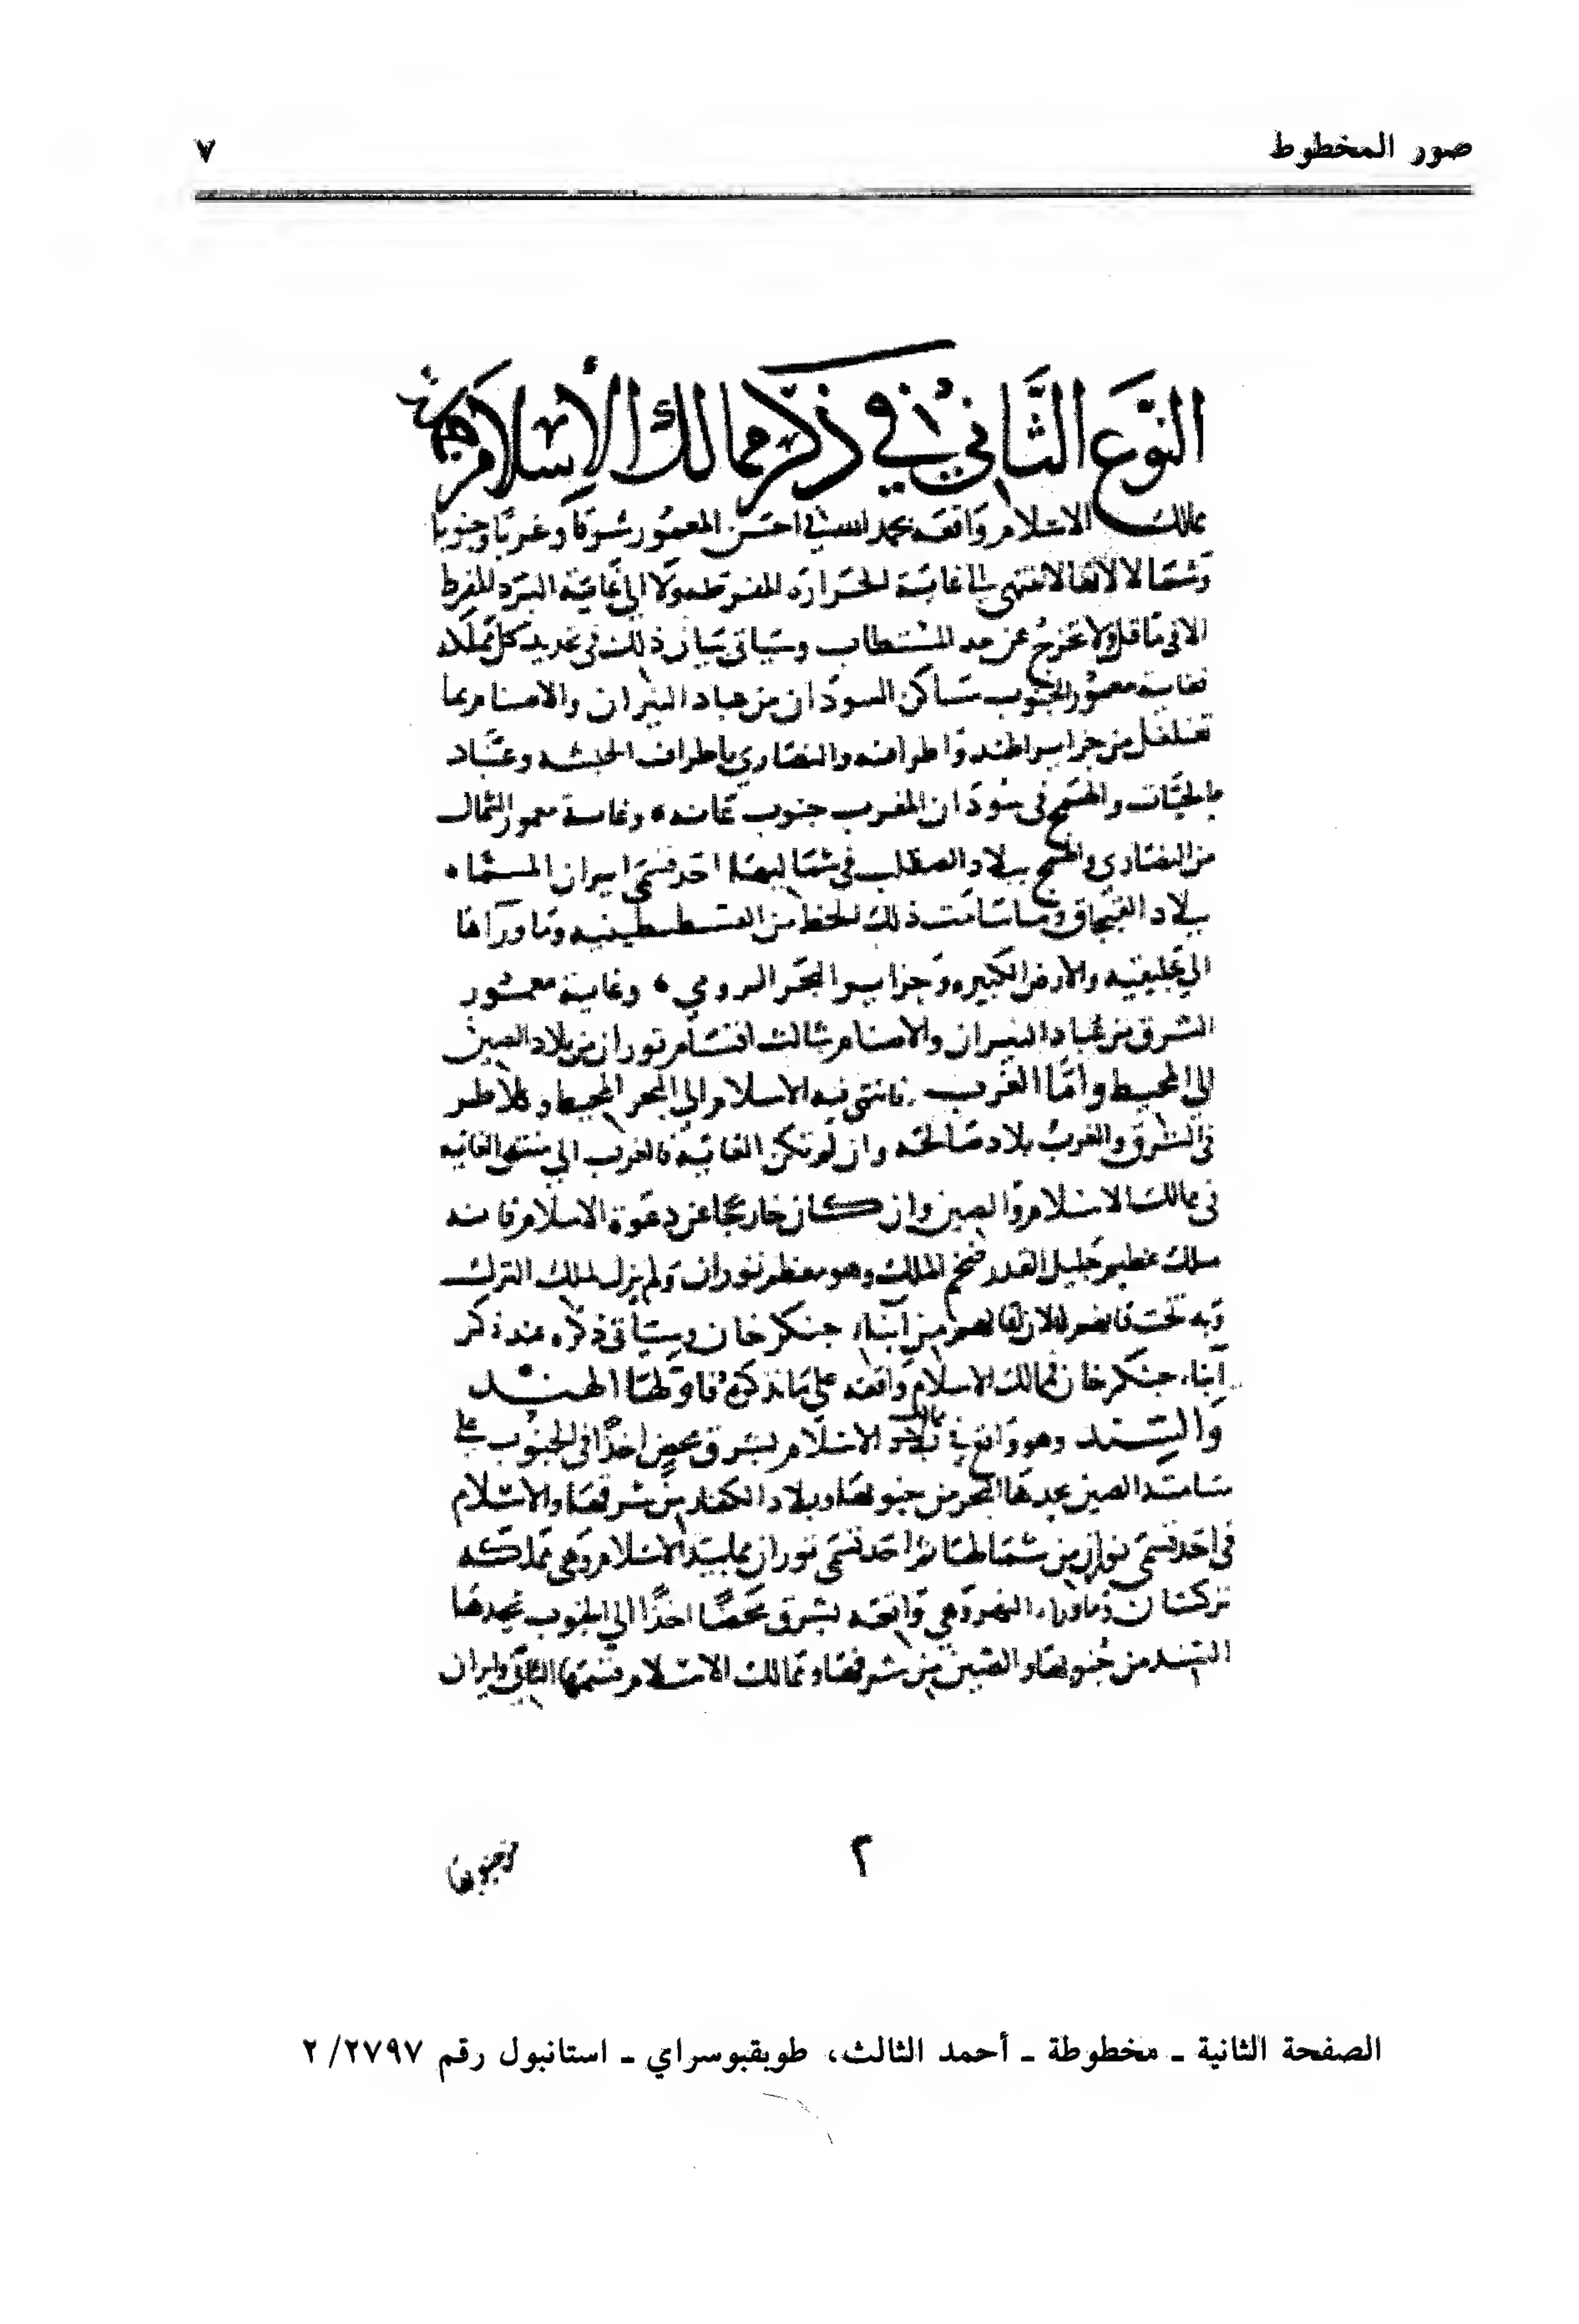 صور المخطوط
٧
النوع الثاني في ذكر ممالك الإسلام
ممالك الاسلام واقعه بحمد الله في احسن المعمور شرقا وغربا وجنوبا
وشمالا لانها لا تنتهي الى غاية الحرارة المفرطه ولا الى غاية البرد المفرط
الا في ما قل ولا تخرج عن حد المستطاب وسياتي بيان ذلك في تحديد كل مملكه
فغاية معمور الجنوب مساكن السودان من عباد النيران والاصنام بما
تغلغل من جزاير الهند واطرافه والنصاري باطراف الحبشه وعباد
الحيات والهمج في سودان المغرب جنوب غانه وغاية معمور الشمال
من النصاري والهمج ببلاد الصقلب في شماليها احد قسمي ايران المسماه
ببلاد القبجاق وما سامت ذلك الخط من القسطنطينيه وما وراها
الي جليقيه والارض الكبيره وجزاير البحر الرومي وغاية معمور
الشرق من عباد النيران والاصنام ثالث اقسام توران من بلاد الصين
الى المحيط واما الغرب فانتهي فيه الاسلام الي البحر المحيط
في الشرق والغرب بلاد صالحه وان لم تكن الغايه فالغرب الي منتهى الغايه
في ممالك الاسلام والصين وان كان خارجا عن دعوة الاسلام فانه
ملك عظيم جليل القدر ضخم الملك وهو معظم توران ولم يزل لملك الترك
وبه تخت من آبناء جنكز خان وسياتي ذكره عند ذكر
آبناء جنكز خان فممالك الاسلام واقعه على ما نذكره فاولها الهند
والسند وهو واقع في ممالك بلاد الاسلام بشرق محض اخذا في الجنوب على
سامتة الصين يحدها البحر من جنوبها وبلاد الكفار من شرقها والاسلام
في احد قسمي توران من شمالها ثم احد قسمي توران مما بيد الاسلام وهي مملكه
تركستان وماوراء النهر وهي واقعه بشرق محضا اخذا الي الجنوب يحدها
السند من جنوبها والصين من شرقها وممالك الاسلام قسمها الثاني وايران
٢
وجنوبها
الصفحة الثانية ـ مخطوطة ـ أحمد الثالث، طوبقبوسراي ـ استانبول رقم ٢٧٩٧/ ٢